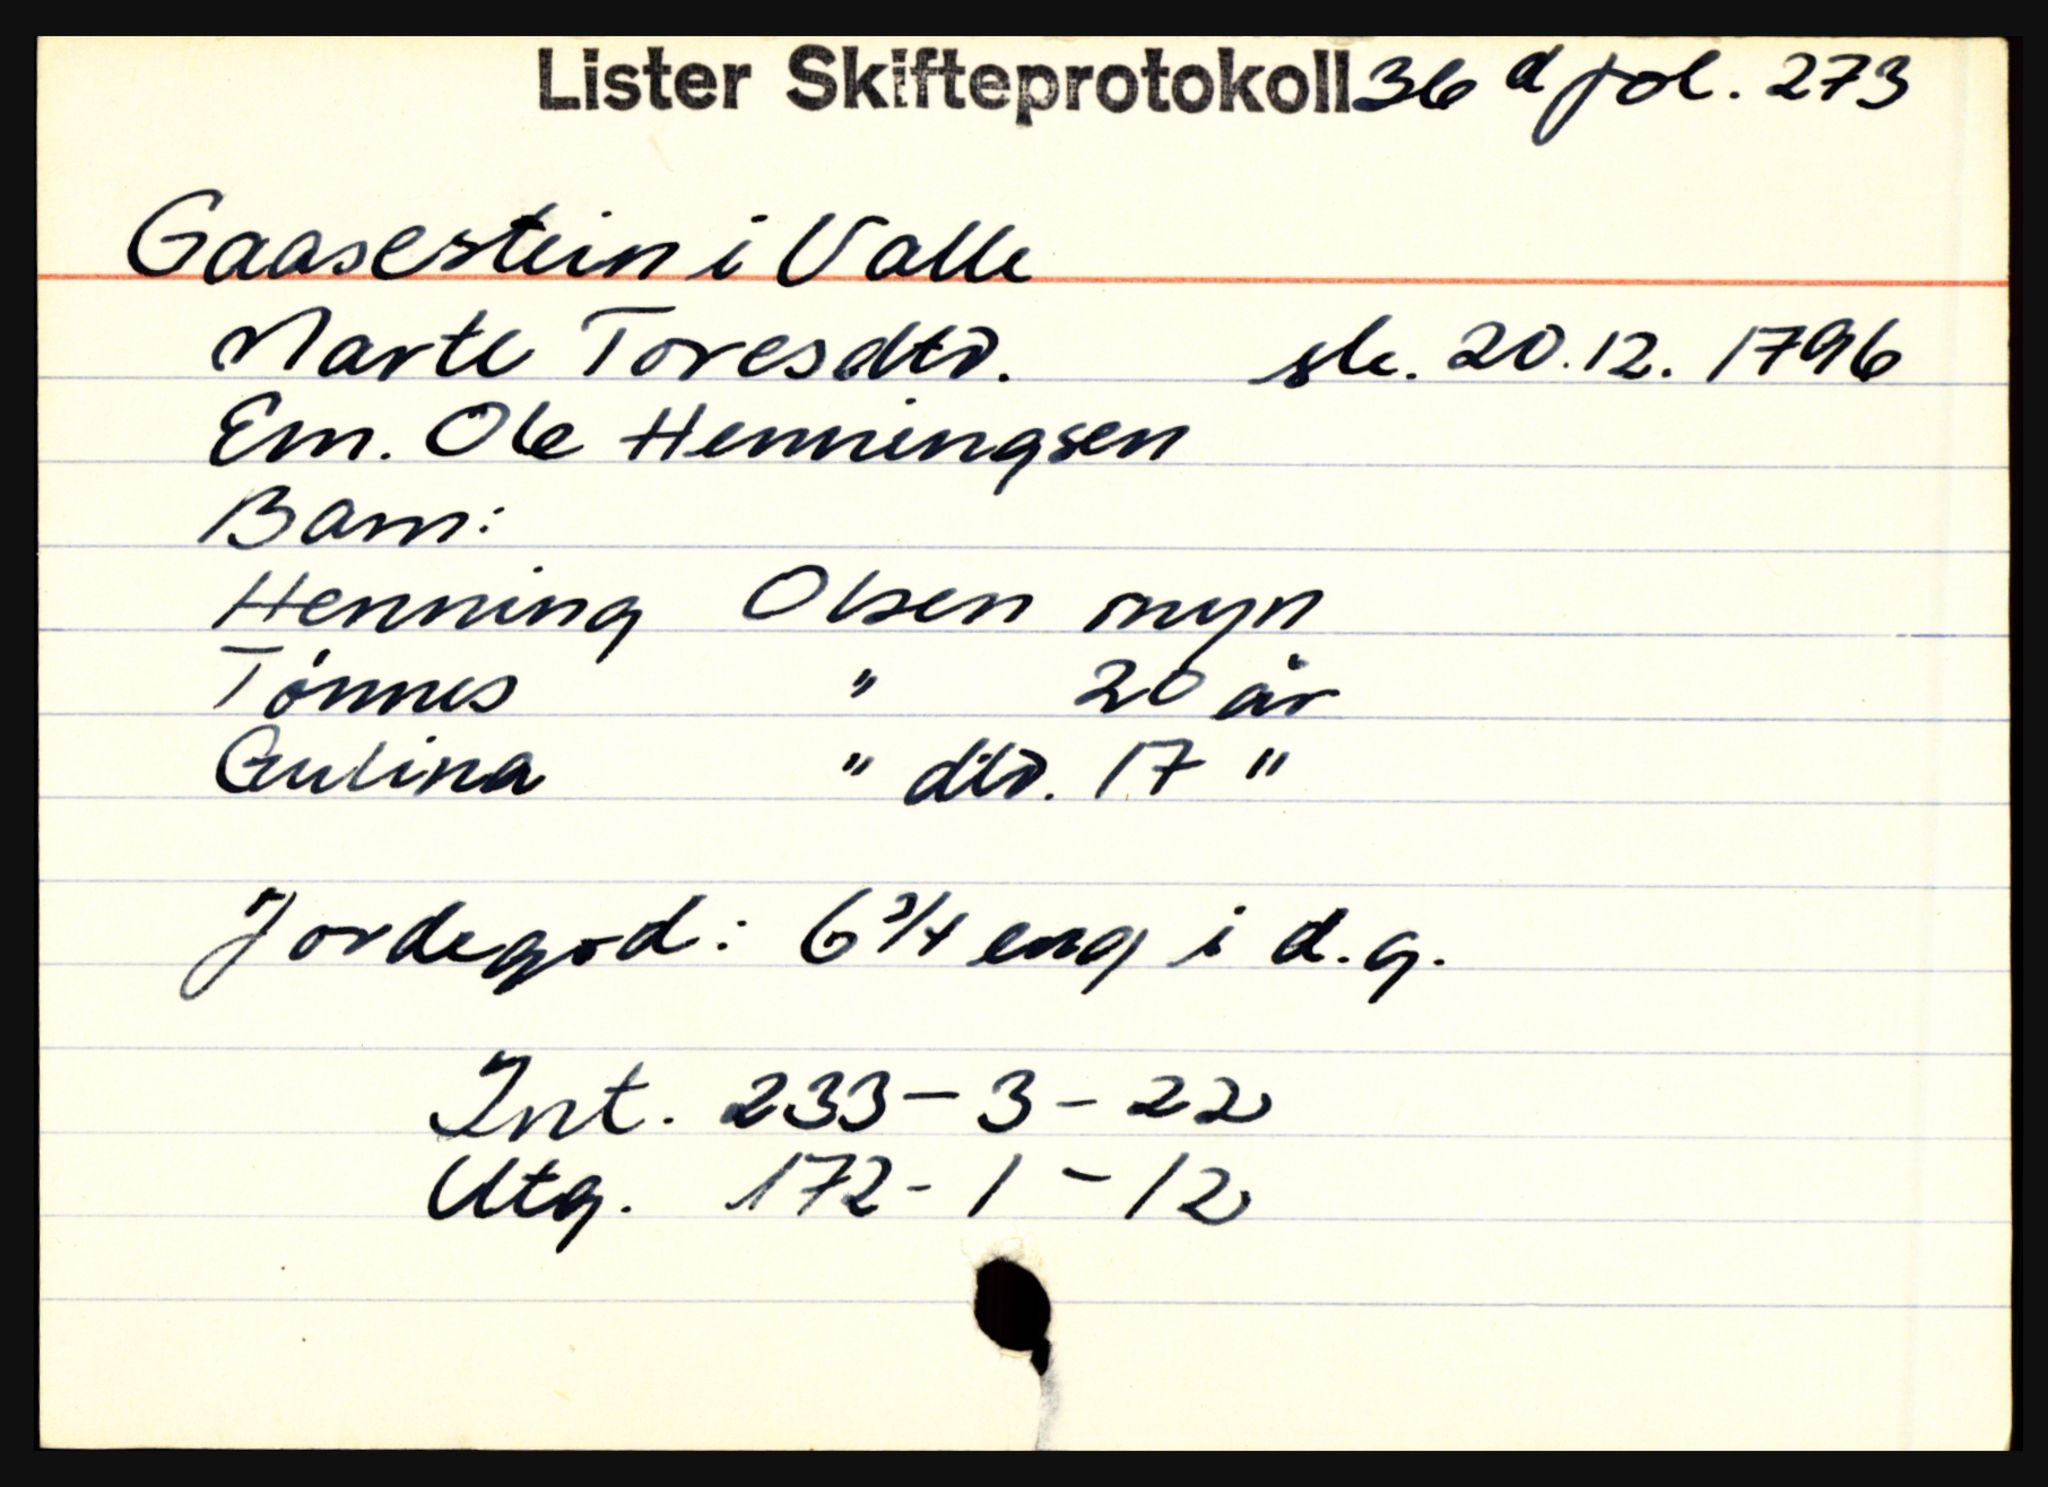 Lister Skifteprotokoll 36 d fol. 273
Gaasestein i Valle
Marte Toresdtr. sk. 20.12.1796
Em. Ole Henningsen
Barn:
Henning Olsen myn
Tønnes " 20 år
Gulina " dtr. 17 "
Jordegod: 6 3/4 eng i d.g.
Int. 233 - 3 - 22
Utg. 172 - 1 - 12